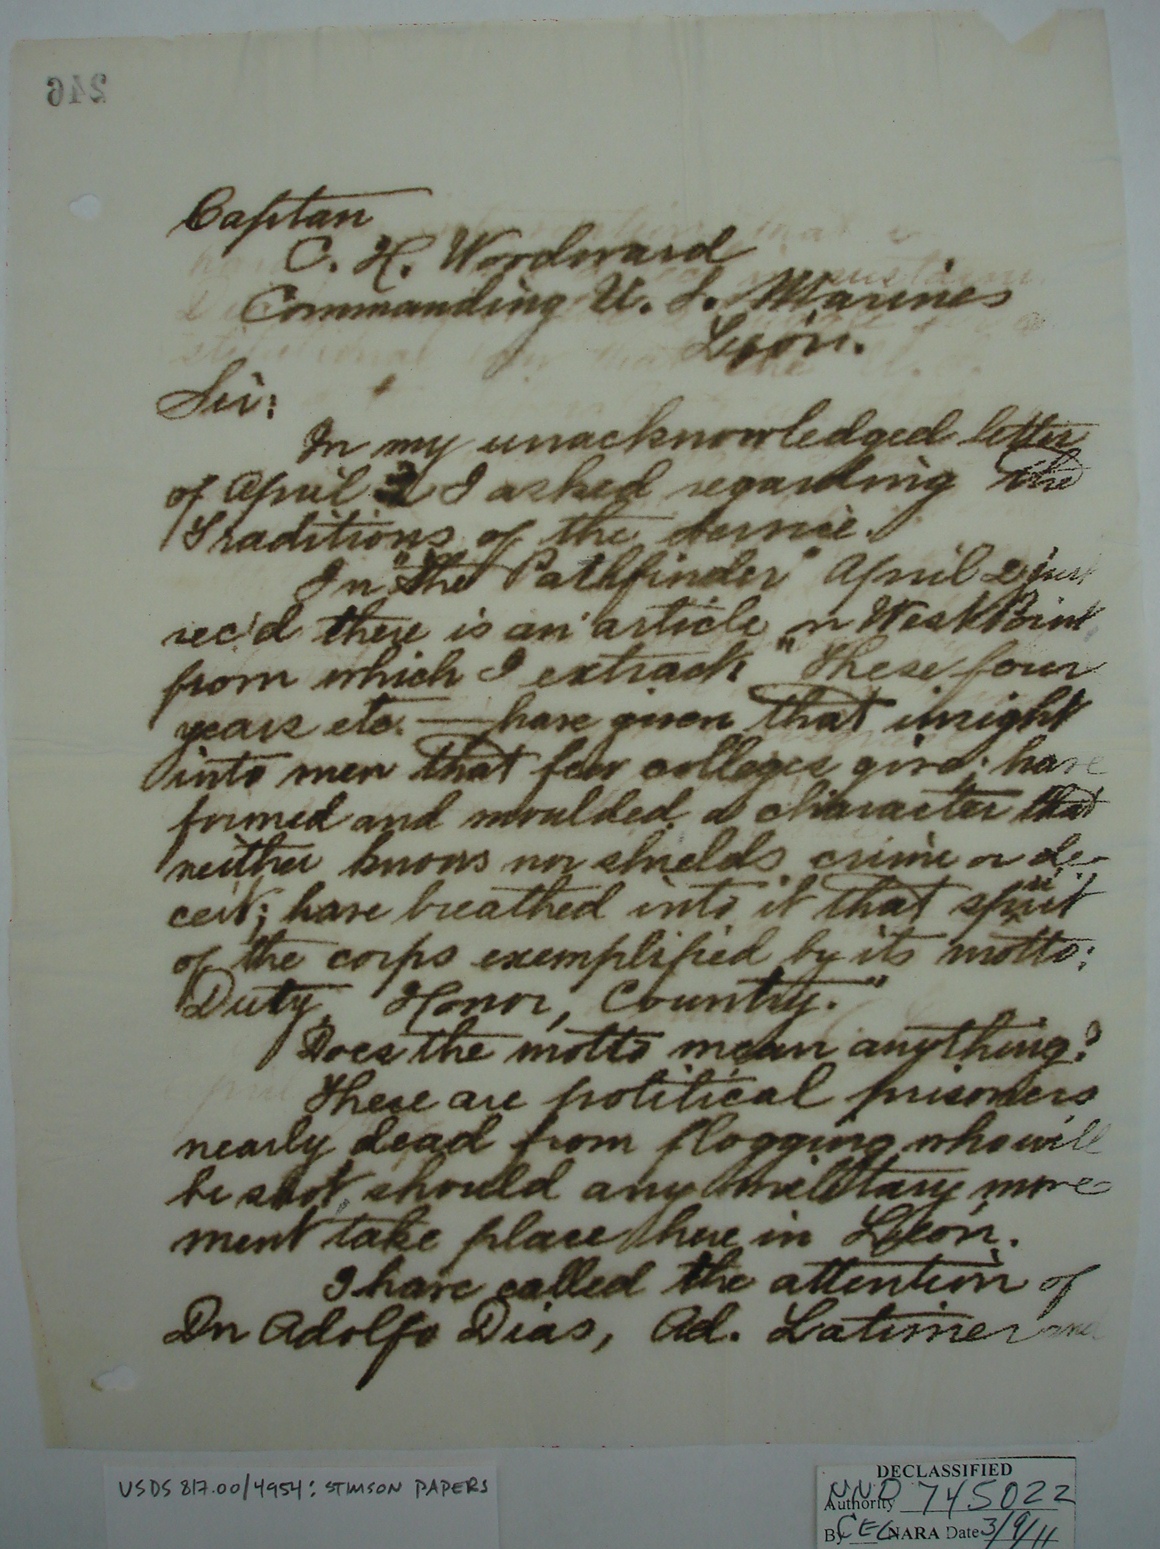 246
Captan
C. H. Woodward
Commanding U. S. Marines
León.
Sir:
In my unacknowledged letter
of April 2 I asked regarding the
Traditions of the Service.
In "The Pathfinder" April 2 just
rec'd there is an article on West Point
from which I extract "These four
years etc. — have given that insight
into men that few colleges give; have
formed and moulded a character that
neither knows nor shields crime or de-
ceit; have breathed into it that spirit
of the corps exemplified by its motto:
Duty, Honor, Country."
Does the motto mean anything?
These are political prisoners
nearly dead from flogging who will
be shot should any military move
ment take place here in León.
I have called the attention of
Dn Adolfo Dias, Ad. Latimer and
USDS 817.00/4954: STIMSON PAPERS
DECLASSIFIED
Authority NND 745022
By CEG NARA Date 3/9/11